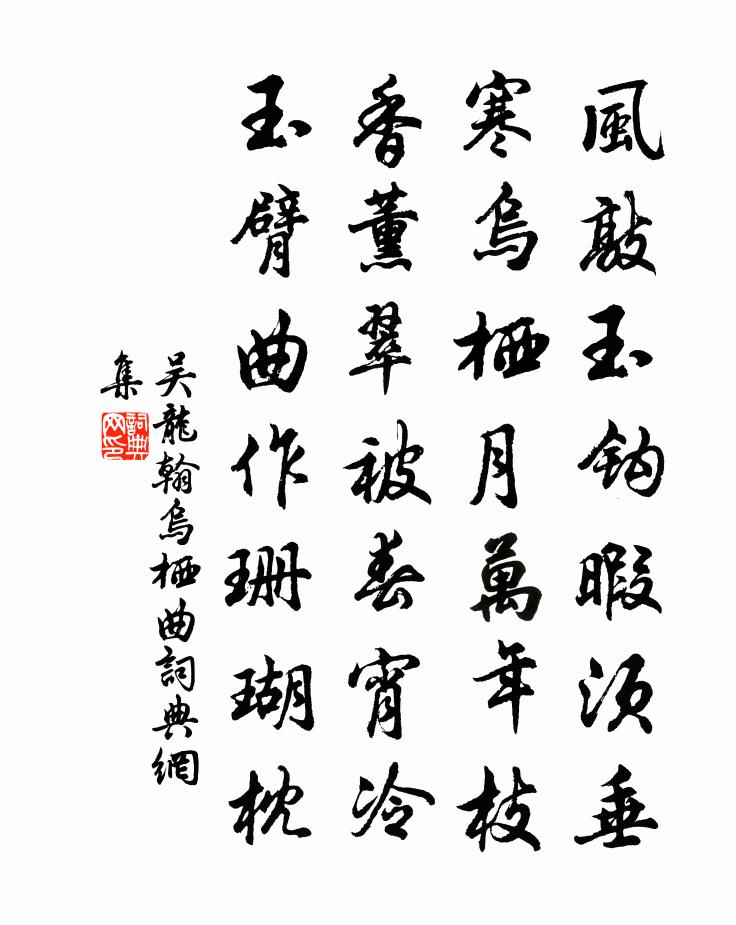 風敲玉鈎暇須垂
寒烏栖月萬年枝
香薰翠被春宵冷
玉臂曲作珊瑚枕
吴龍翰烏栖曲詞典網
集
詞典
网印